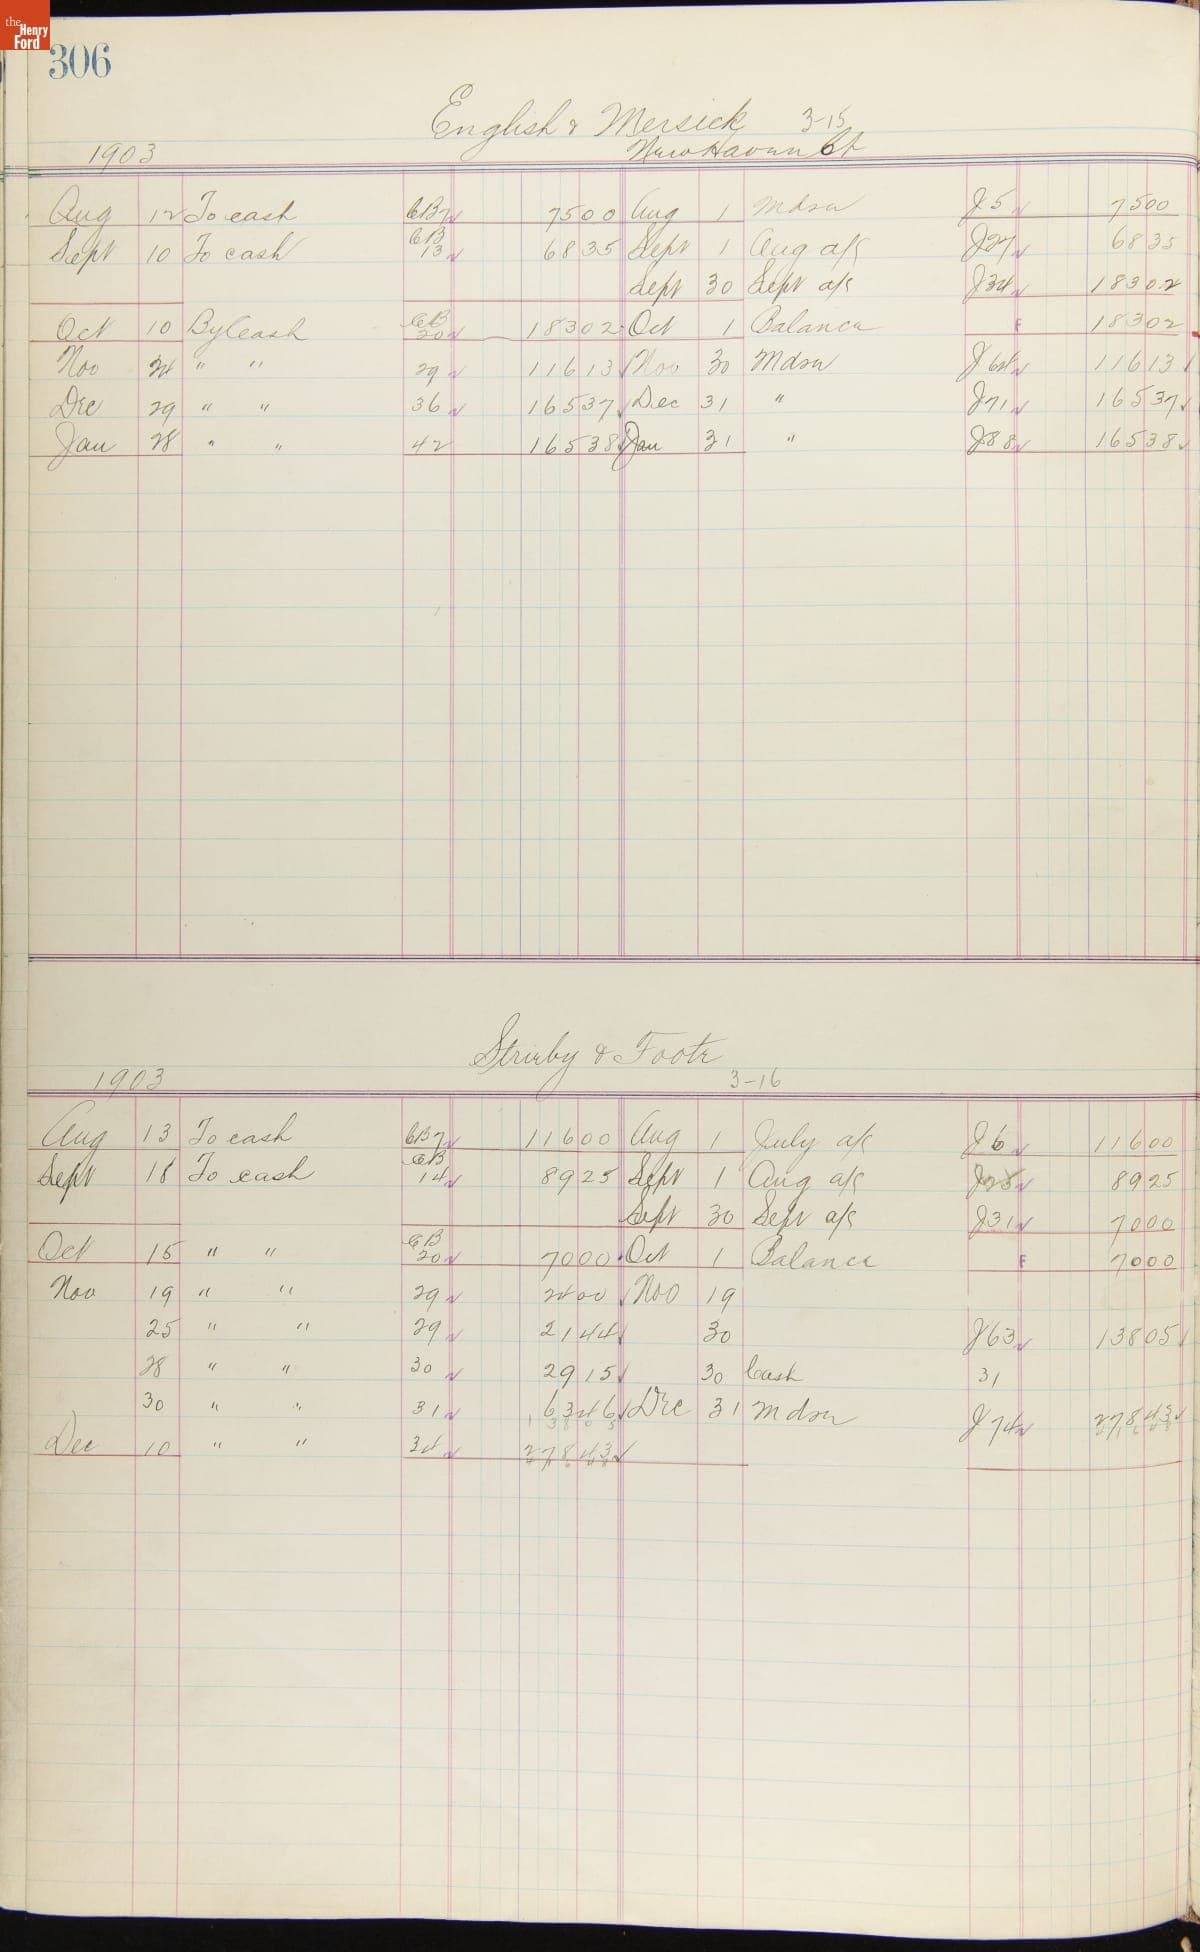 the Henry Ford
306
English & Mersick 3-15
1903 New Haven Ct
Aug 12 To cash CB7 7500 Aug 1 Mdse J5 7500
Sept 10 To cash CB 13 6835 Sept 1 Aug a/c J27 6835
Sept 30 Sept a/c J34 18302
Oct 10 By Cash CB 20 18302 Oct 1 Balance F 18302
Nov 24 " " 29 11613 Nov 30 Mdse J64 11613
Dec 29 " " 36 16537 Dec 31 " J71 16537
Jan 28 " " 42 16538 Jan 31 " J88 16538
& Foote
1903 3-16
Aug 13 To cash CB7 11600 Aug 1 July a/c J6 11600
Sept 18 To cash CB 14 8925 Sept 1 Aug a/c 8925
Sept 30 Sept a/c J31 7000
Oct 15 " " CB 20 7000 Oct 1 Balance F 7000
Nov 19 " " 29 2400 Nov 19
25 " " 29 2144 30 J63 13805
28 " " 30 2915 30 Cash 31
30 " " 31 6346 Dec 31 Mdse J74 27843
Dec 10 " " 34 27843